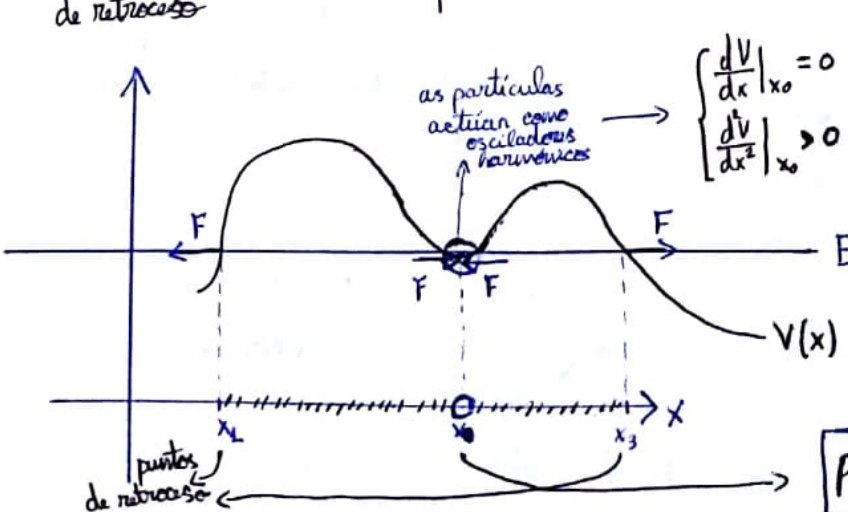 de retroceso
as partículas
actúan como
osciladores
harmónicos
dV/dx |x₀ = 0
d²V/dx² |x₀ > 0
F
F
E
F F
V(x)
x₁ x₃ X
puntos
de retroceso